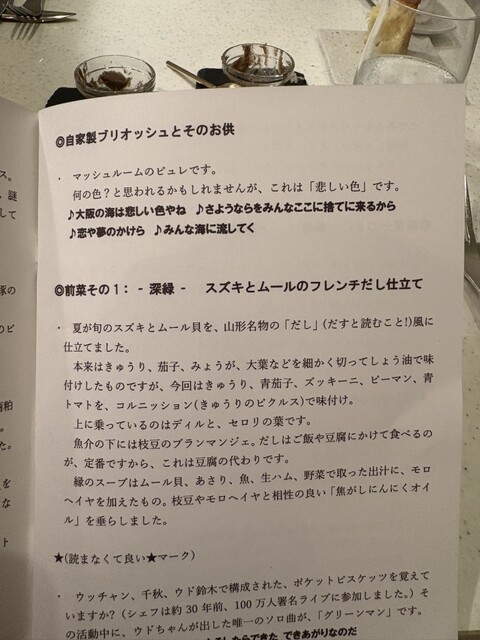 ◎自家製ブリオッシュとそのお供
・ マッシュルームのピュレです。
何の色？と思われるかもしれませんが、これは「悲しい色」です。
♪大阪の海は悲しい色やね ♪さようならをみんなここに捨てに来るから
♪恋や夢のかけら ♪みんな海に流してく
◎前菜その１： - 深緑 - スズキとムールのフレンチだし仕立て
・ 夏が旬のスズキとムール貝を、山形名物の「だし」(だすと読むこと!)風に
仕立てました。
本来はきゅうり、茄子、みょうが、大葉などを細かく切ってしょう油で味
付けしたものですが、今回はきゅうり、青茄子、ズッキーニ、ピーマン、青
トマトを、コルニッション(きゅうりのピクルス)で味付け。
上に乗っているのはディルと、セロリの葉です。
魚介の下には枝豆のブランマンジェ。だしはご飯や豆腐にかけて食べるの
が、定番ですから、これは豆腐の代わりです。
緑のスープはムール貝、あさり、魚、生ハム、野菜で取った出汁に、モロ
ヘイヤを加えたもの。枝豆やモロヘイヤと相性の良い「焦がしにんにくオイ
ル」を垂らしました。
★(読まなくて良い★マーク)
・ ウッチャン、千秋、ウド鈴木で構成された、ポケットビスケッツを覚えて
いますか？(シェフは約 30 年前、100 万人署名ライブに参加しました。) そ
の活動中に、ウドちゃんが出した唯一のソロ曲が、「グリーンマン」です。
したらできた できあがりなのだ